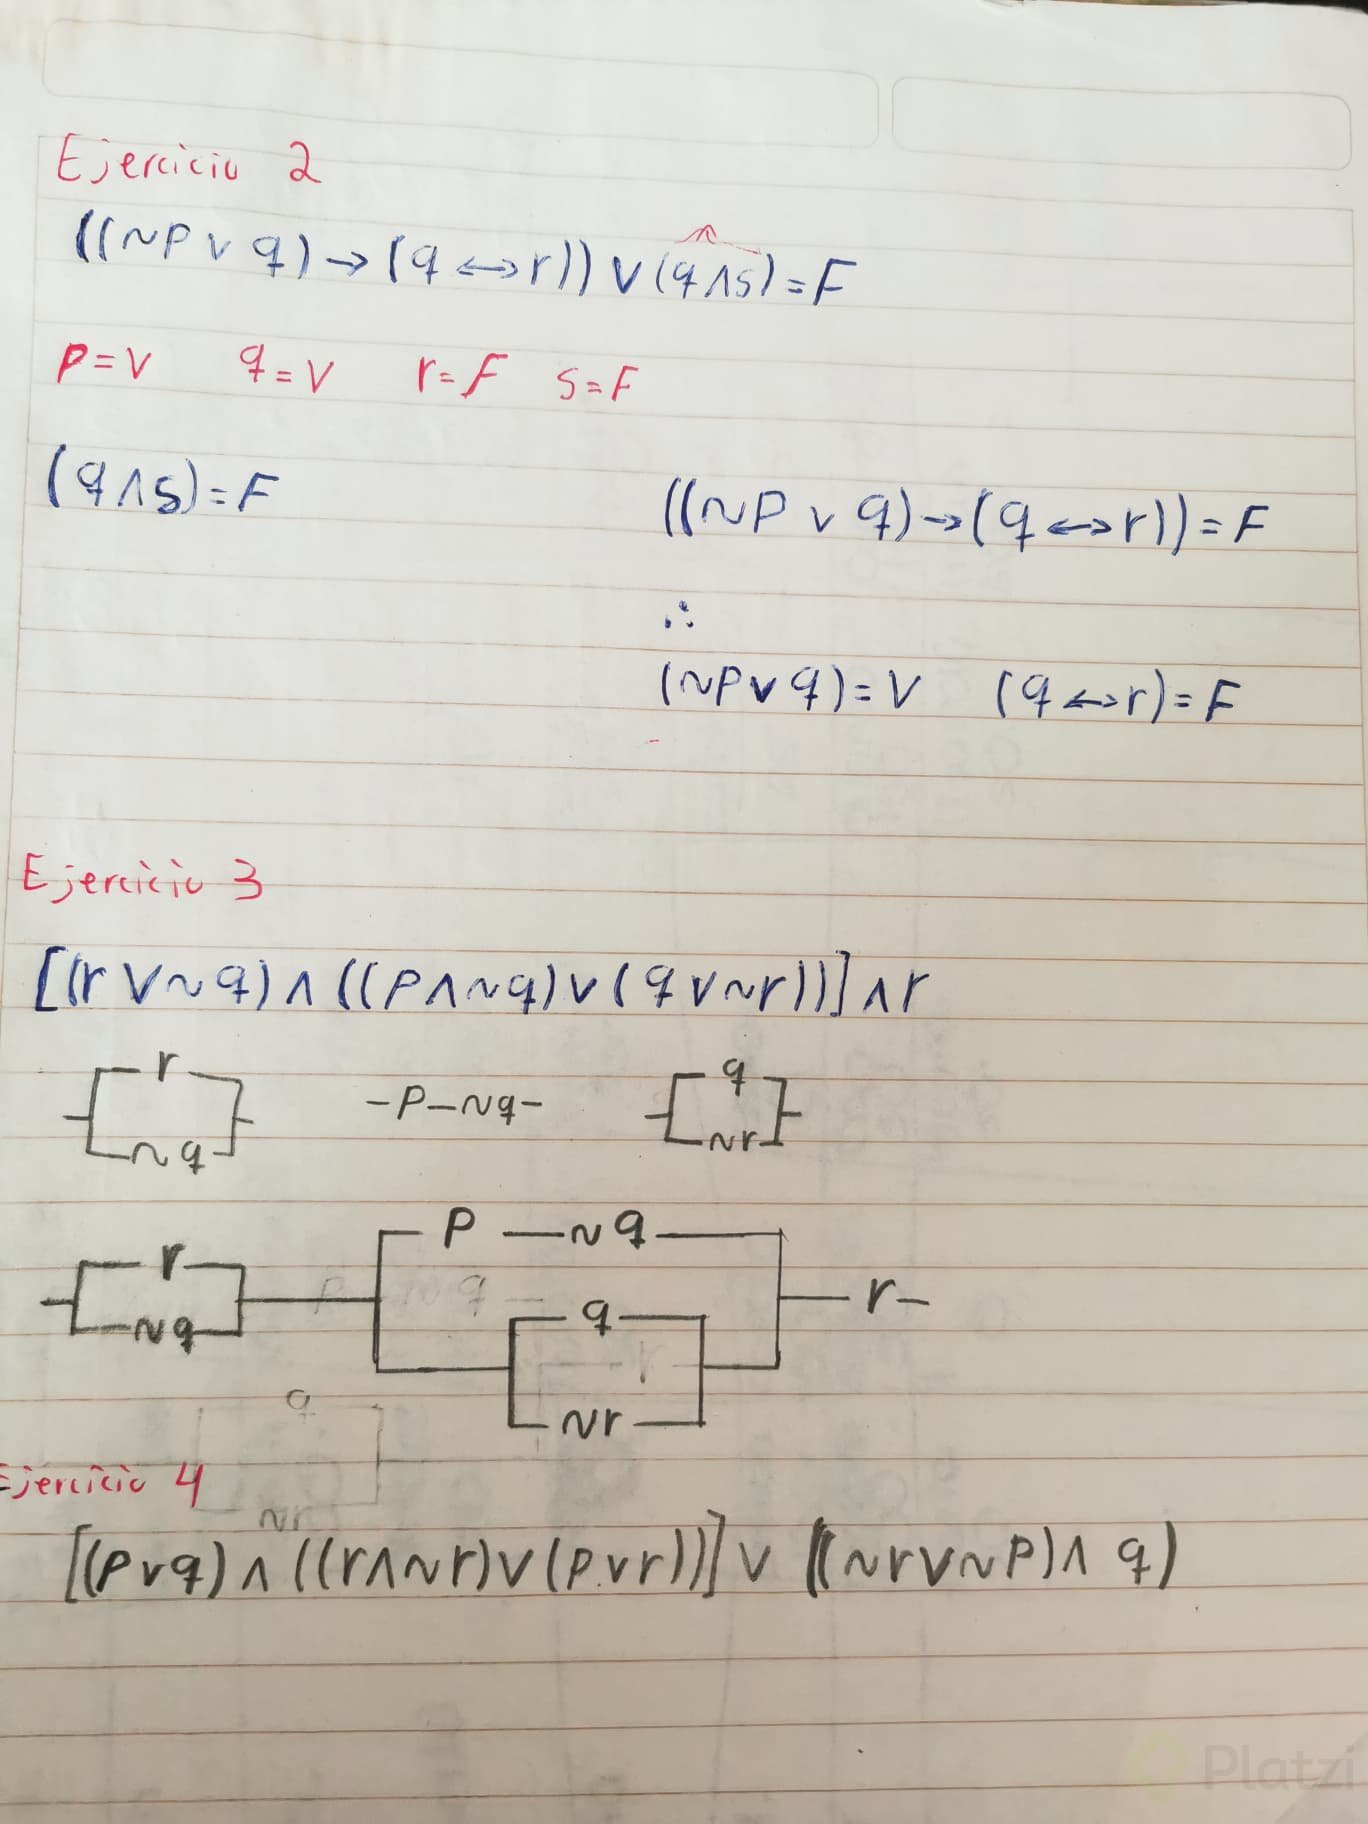 Ejercicio 2
((~p ∨ q) → (q ↔ r)) ∨ (q ∧ s) = F
p = V q = V r = F s = F
(q ∧ s) = F ((~p ∨ q) → (q ↔ r)) = F
∴
(~p ∨ q) = V (q ↔ r) = F
Ejercicio 3
[(r ∨ ~q) ∧ ((p ∧ ~q) ∨ (q ∨ ~r))] ∧ r
r q
-p-~q-
~q ~r
p ~q
r
~q
q
r
~r
Ejercicio 4
[(p ∨ q) ∧ ((r ∧ ~r) ∨ (p ∨ r))] ∨ ((~r ∨ ~p) ∧ q)
Platzi